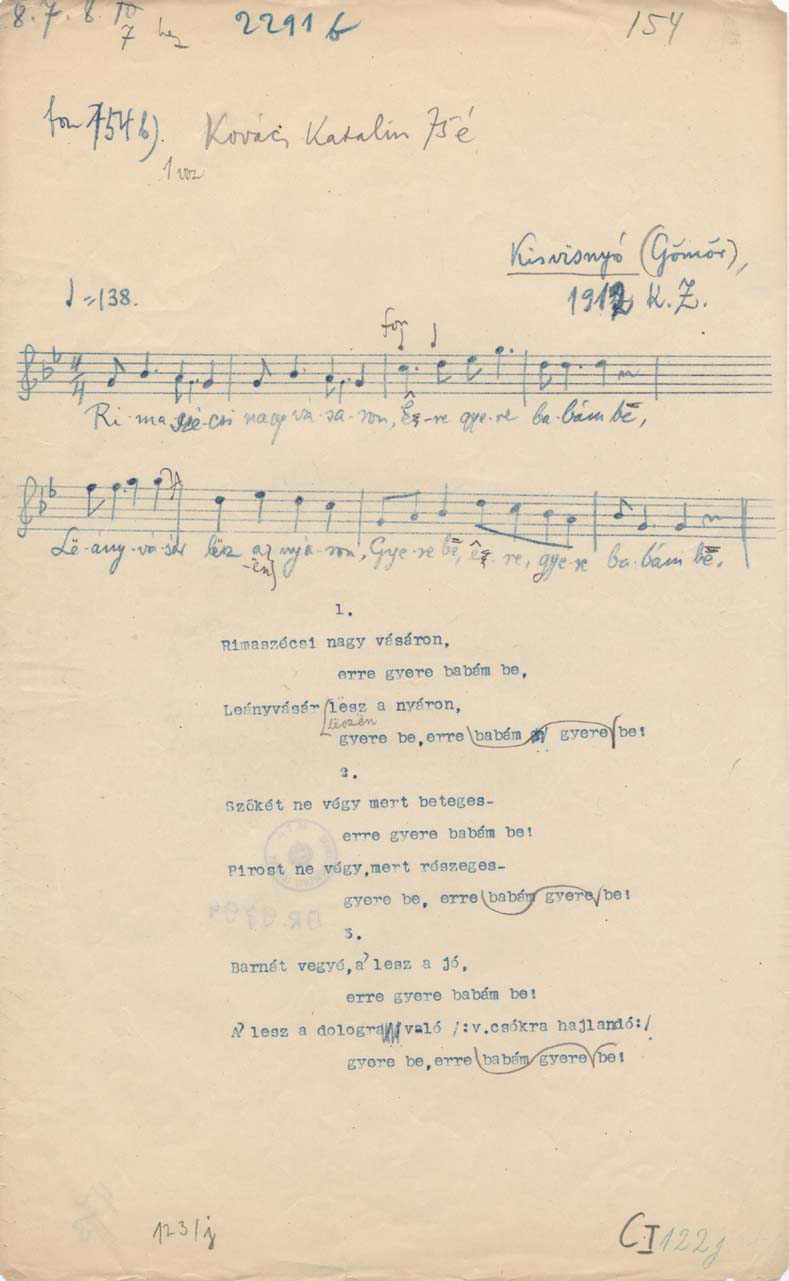 8. 7. 8. 10
7
2291 b
154
fon 154 b). Kovács Katalin 75 é
Kisvisnyó (Gömör),
♩ = 138.
1912 K. Z.
fon
Ri-ma szé-csi nagy vá-sá-ron, ër-re gye-re ba-bám bē,
Lë-ány-vá-sár lësz a nyá-ron, Gye-re bē, ër-re, gye-re ba-bám bē.
-ën
1.
Rimaszécsi nagy vásáron,
erre gyere babám be,
Leányvásár lësz a nyáron,
lëszën
gyere be, erre babám gyere be!
2.
Szőkét ne végy mert beteges-
erre gyere babám be!
Pirost ne végy,mert részeges-
gyere be, erre babám gyere be!
3.
Barnát vegyé,a' lesz a jó,
erre gyere babám be!
A' lesz a dologra való /:v.csókra hajlandó:/
gyere be,erre babám gyere be!
123/j
C I 122 j